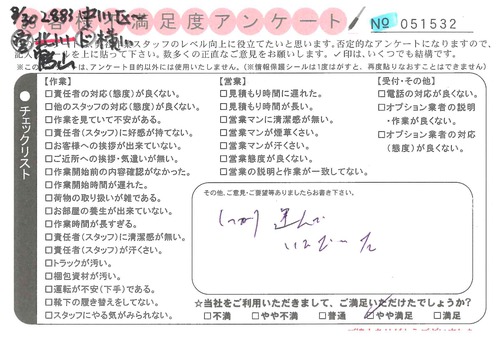 お客様満足度アンケート
№ 051532
8/30 288
スタッフのレベル向上に役立てたいと思います。否定的なアンケートになりますので、
記入 の上に貼って下さい。数多くの正直なご意見をお願いします。✓印は、いくつでも結構です。
は、アンケート目的以外には使用いたしません。(情報保護シールは1度はがすと、再度貼りなおすことはできません)
チェックリスト
【作業】
□責任者の対応(態度)が良くない。
□他のスタッフの対応(態度)が良くない。
□作業を見ていて不安がある。
□責任者(スタッフ)に好感が持てない。
□お客様への挨拶が出来ていない。
□ご近所への挨拶・気遣いが無い。
□作業開始前の内容確認がなかった。
□作業開始時間が遅れた。
□荷物の取り扱いが雑である。
□お部屋の養生が出来ていない。
□作業時間が長すぎる。
□責任者(スタッフ)に清潔感が無い。
□責任者(スタッフ)が汗くさい。
□トラックが汚い。
□梱包資材が汚い。
□運転が不安(下手)である。
□靴下の履き替えをしてない。
□スタッフにやる気がみられない。
【営業】
□見積もり時間に遅れた。
□見積もり時間が長い。
□営業マンに清潔感が無い。
□営業マンが煙草くさい。
□営業マンが汗くさい。
□営業態度が良くない。
□営業の説明と作業が一致してない。
【受付・その他】
□電話の対応が良くない。
□オプション業者の説明
・作業が良くない。
□オプション業者の対応
(態度)が良くない。
その他、ご意見・ご要望等ありましたらお書き下さい。
運んで
いただいた
☆当社をご利用いただきまして、ご満足いただけたでしょうか?
□不満 □やや不満 □普通 ☑やや満足 □満足